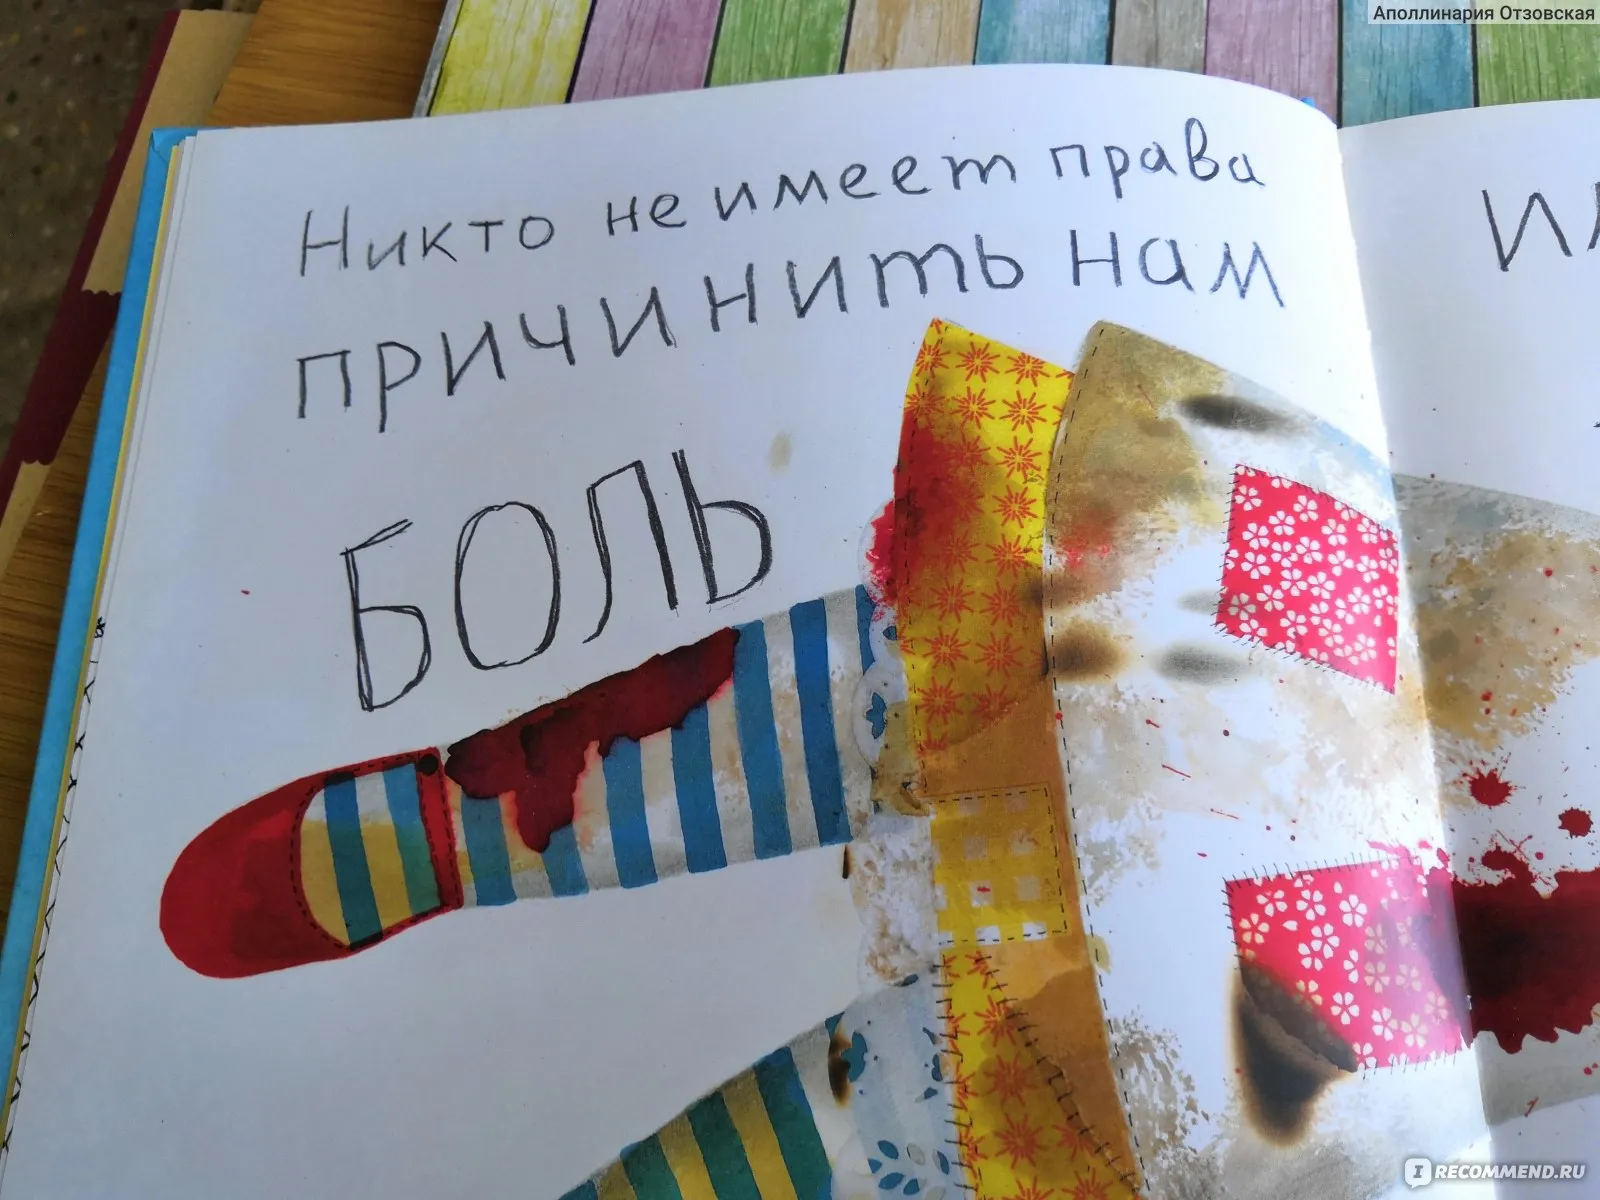 Аполлинария Отзовская
Никто не имеет права
причинить нам
БОЛЬ
IRECOMMEND.RU